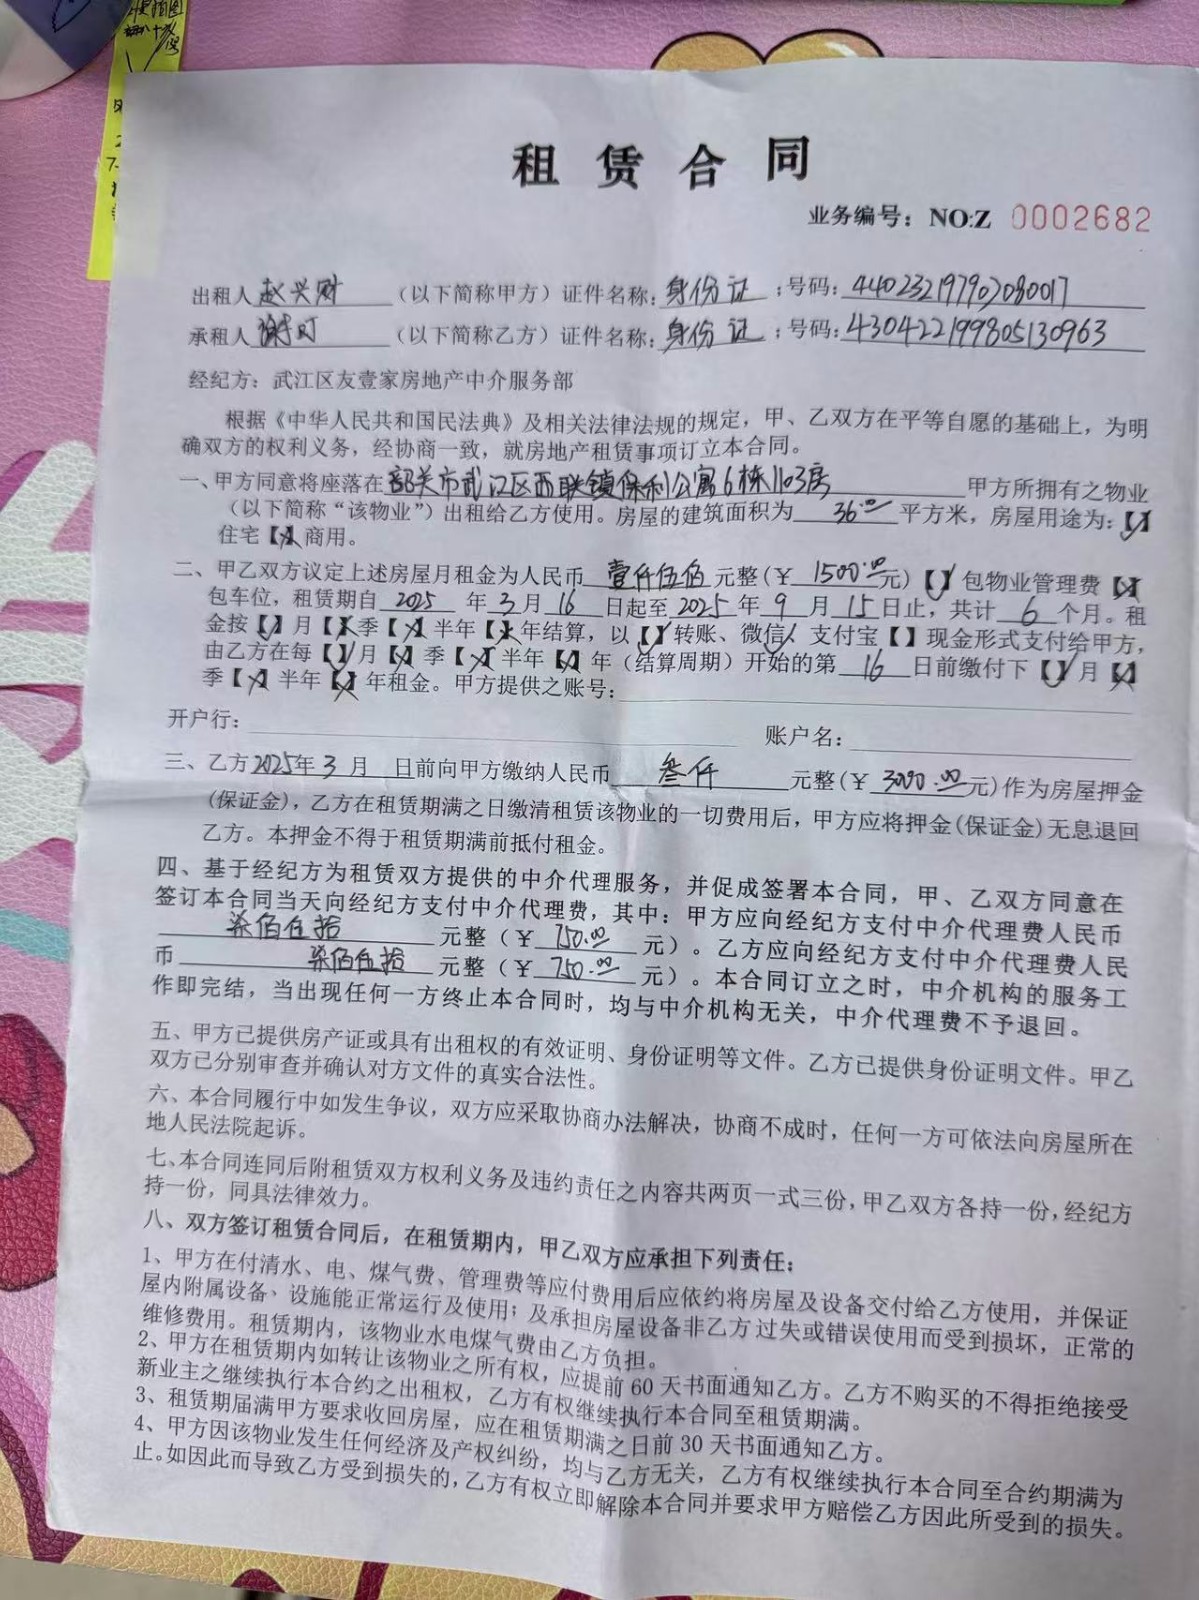 租赁合同
业务编号：NO:Z 0002682
出租人赵兴财（以下简称甲方）证件名称：身份证；号码：440232197903080017
承租人谢可（以下简称乙方）证件名称：身份证；号码：430422199805130963
经纪方：武江区友壹家房地产中介服务部
根据《中华人民共和国民法典》及相关法律法规的规定，甲、乙双方在平等自愿的基础上，为明
确双方的权利义务，经协商一致，就房地产租赁事项订立本合同。
一、甲方同意将座落在韶关市武江区西联镇保利公寓6栋1103房甲方所拥有之物业
（以下简称“该物业”）出租给乙方使用。房屋的建筑面积为36.00平方米，房屋用途为：【√】
住宅【×】商用。
二、甲乙双方议定上述房屋月租金为人民币壹仟伍佰元整(￥1500.00元)【√】包物业管理费【×】
包车位，租赁期自2025年3月16日起至2025年9月15日止，共计6个月。租
金按【√】月【×】季【×】半年【×】年结算，以【√】转账、微信、支付宝【】现金形式支付给甲方，
由乙方在每【√】月【×】季【×】半年【×】年（结算周期）开始的第16日前缴付下【√】月【×】
季【×】半年【×】年租金。甲方提供之账号：
开户行： 账户名：
三、乙方2025年3月 日前向甲方缴纳人民币叁仟元整(￥3000.00元)作为房屋押金
(保证金)，乙方在租赁期满之日缴清租赁该物业的一切费用后，甲方应将押金(保证金)无息退回
乙方。本押金不得于租赁期满前抵付租金。
四、基于经纪方为租赁双方提供的中介代理服务，并促成签署本合同，甲、乙双方同意在
签订本合同当天向经纪方支付中介代理费，其中：甲方应向经纪方支付中介代理费人民币
柒佰伍拾元整（￥750.00元）。乙方应向经纪方支付中介代理费人民
币柒佰伍拾元整（￥750.00元）。本合同订立之时，中介机构的服务工
作即完结，当出现任何一方终止本合同时，均与中介机构无关，中介代理费不予退回。
五、甲方已提供房产证或具有出租权的有效证明、身份证明等文件。乙方已提供身份证明文件。甲乙
双方已分别审查并确认对方文件的真实合法性。
六、本合同履行中如发生争议，双方应采取协商办法解决，协商不成时，任何一方可依法向房屋所在
地人民法院起诉。
七、本合同连同后附租赁双方权利义务及违约责任之内容共两页一式三份，甲乙双方各持一份，经纪方
持一份，同具法律效力。
八、双方签订租赁合同后，在租赁期内，甲乙双方应承担下列责任：
1、甲方在付清水、电、煤气费、管理费等应付费用后应依约将房屋及设备交付给乙方使用，并保证
屋内附属设备、设施能正常运行及使用；及承担房屋设备非乙方过失或错误使用而受到损坏，正常的
维修费用。租赁期内，该物业水电煤气费由乙方负担。
2、甲方在租赁期内如转让该物业之所有权，应提前60天书面通知乙方。乙方不购买的不得拒绝接受
新业主之继续执行本合约之出租权，乙方有权继续执行本合同至租赁期满。
3、租赁期届满甲方要求收回房屋，应在租赁期满之日前30天书面通知乙方。
4、甲方因该物业发生任何经济及产权纠纷，均与乙方无关，乙方有权继续执行本合同至合约期满为
止。如因此而导致乙方受到损失的，乙方有权立即解除本合同并要求甲方赔偿乙方因此所受到的损失。